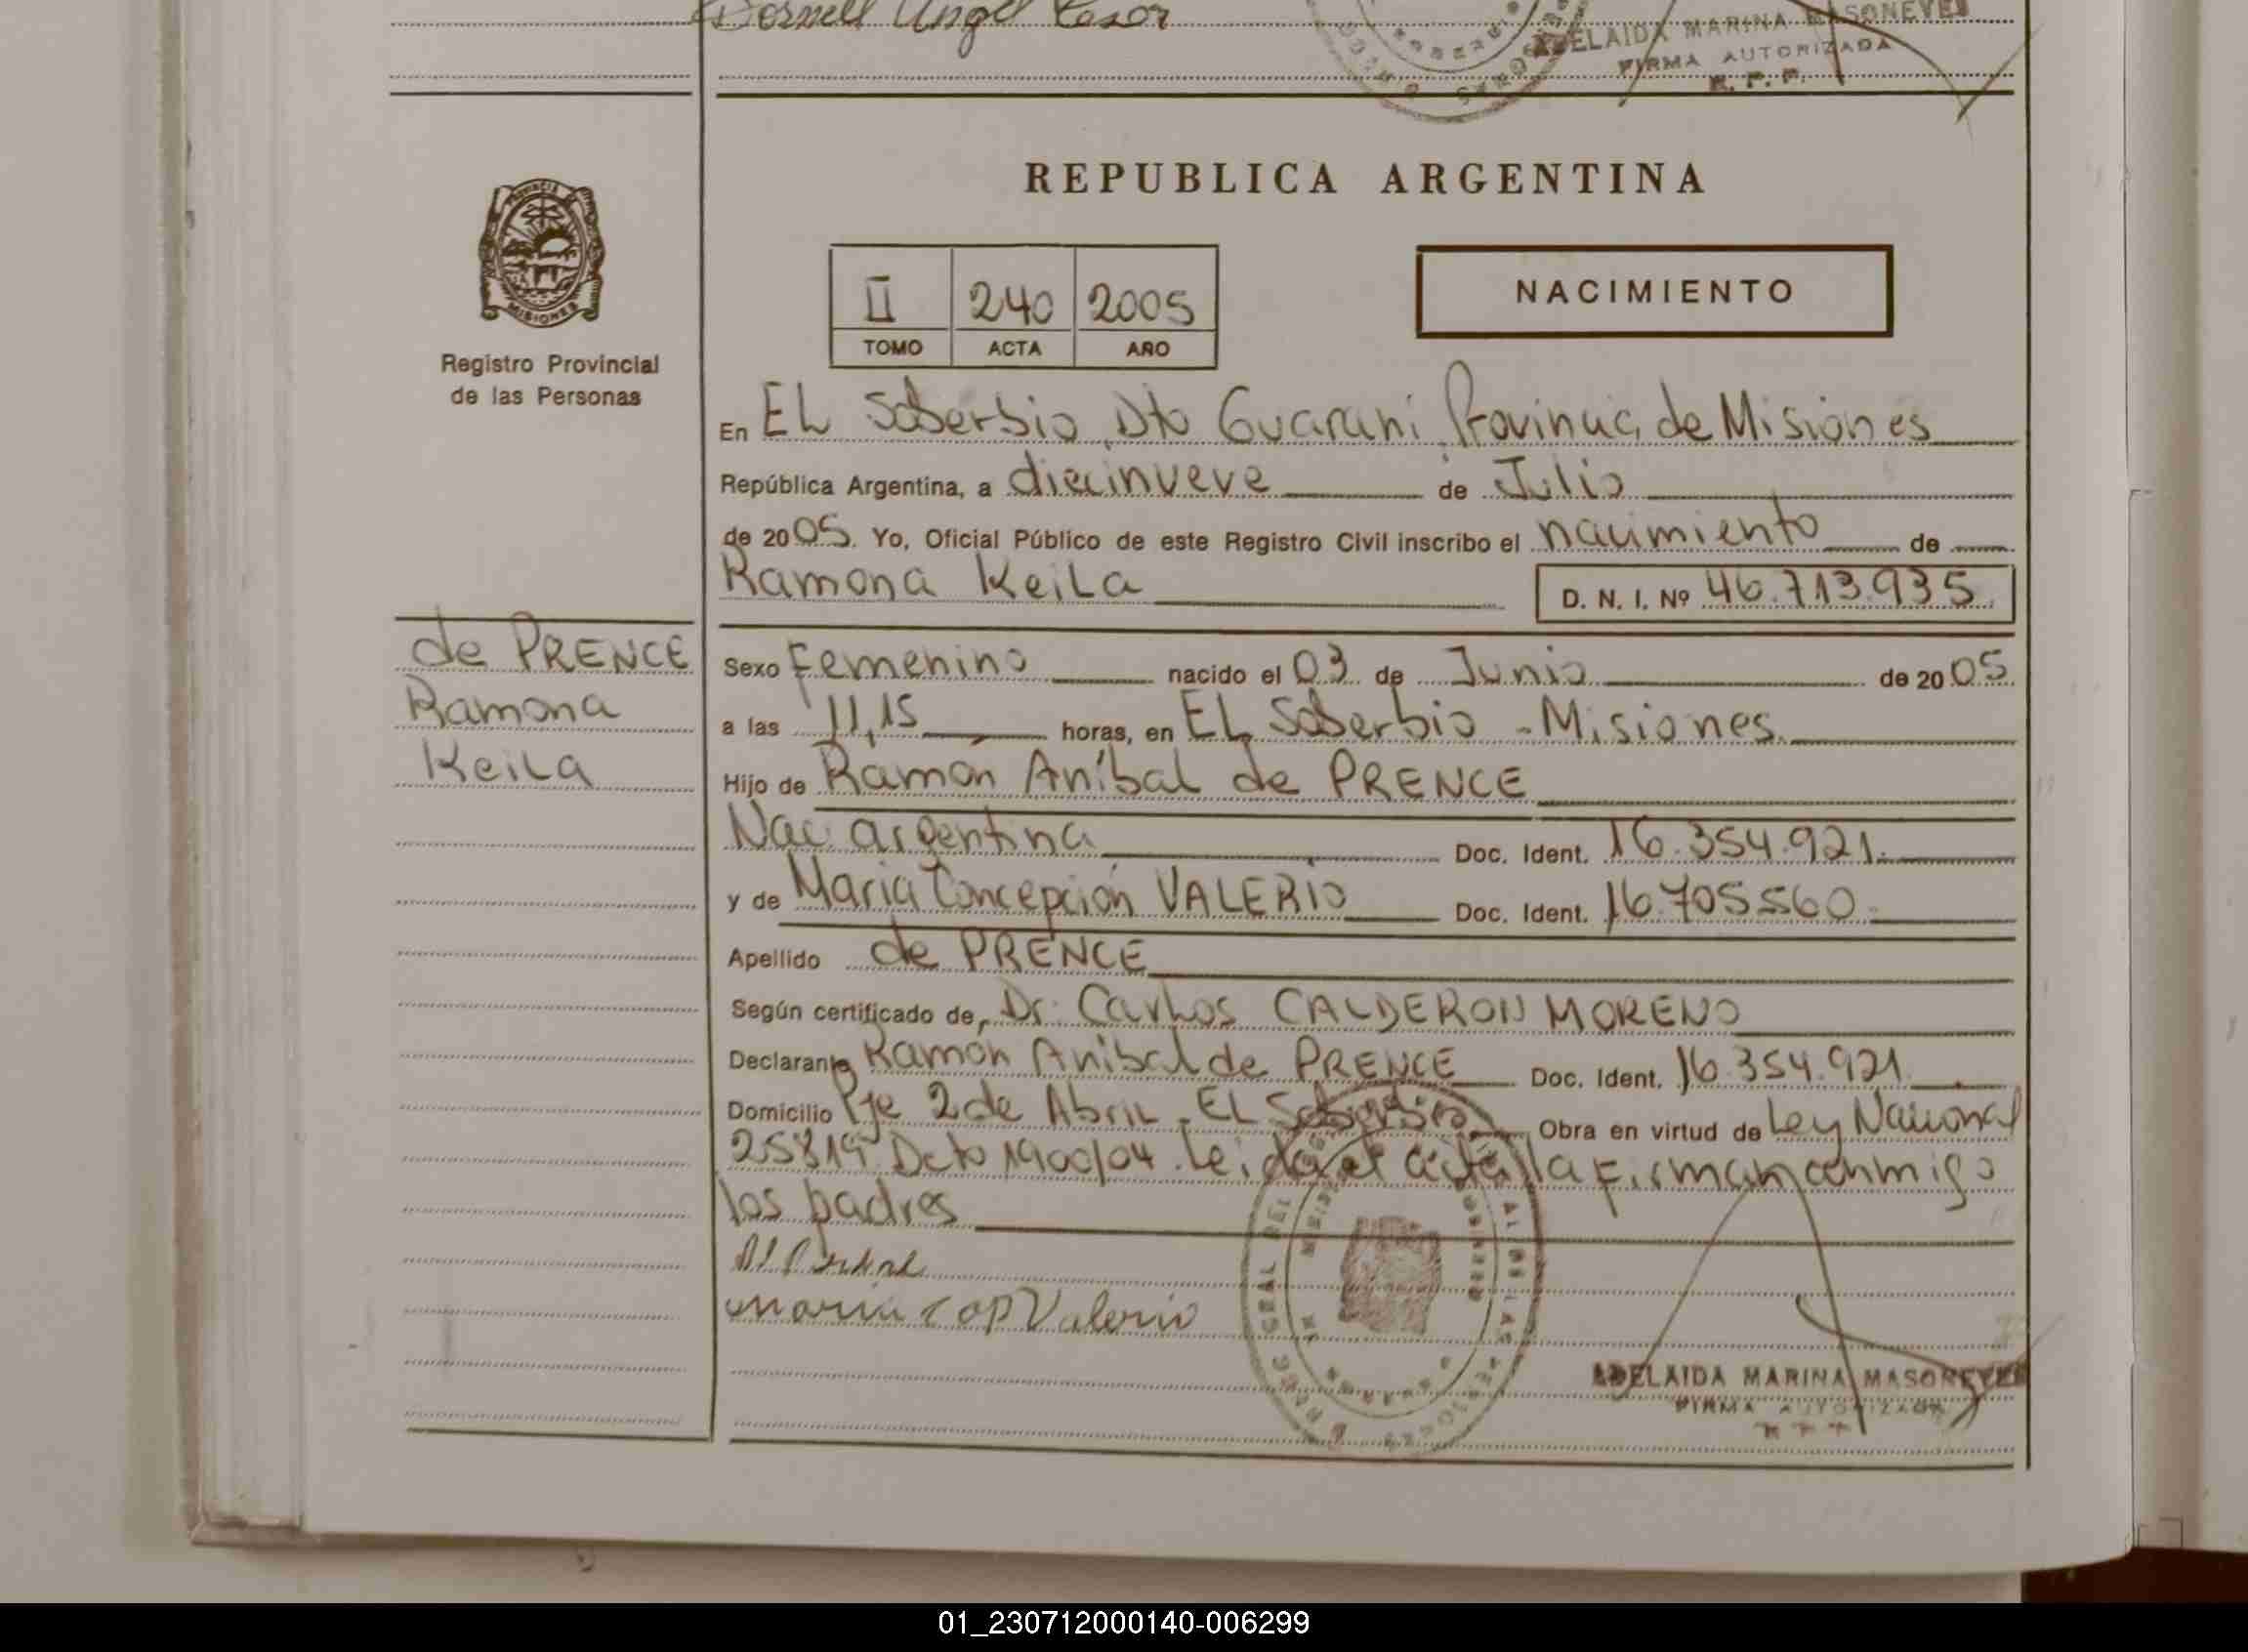 Dornell Angel Cesar
ADELAIDA MARINA MASONEVEI
FIRMA AUTORIZADA
R. P. P.
REPUBLICA ARGENTINA
PROVINCIA
MISIONES
Registro Provincial
de las Personas
II 240 2005
TOMO ACTA AÑO
NACIMIENTO
En EL Soberbio, Dto Guaraní, Provincia de Misiones
República Argentina, a diecinueve de Julio
de 2005. Yo, Oficial Público de este Registro Civil inscribo el nacimiento de
Ramona Keila D. N. I. Nº 46.713.935
de PRENCE
Ramona
Keila
Sexo Femenino nacido el 03 de Junio de 2005
a las 11,15 horas, en EL Soberbio - Misiones
Hijo de Ramón Aníbal de PRENCE
Nac. argentina Doc. Ident. 16.354.921
y de María Concepción VALERIO Doc. Ident. 16.705.560
Apellido de PRENCE
Según certificado de, Dr. Carlos CALDERON MORENO
Declarante Ramón Anibal de PRENCE Doc. Ident. 16.354.921
Domicilio Pje 2 de Abril - EL Soberbio Obra en virtud de Ley Nacional
25819 Dcto 1900/04. Leida el acta la firman conmigo
los padres
Maria Valerio
ADELAIDA MARINA MASONEVEI
FIRMA AUTORIZADA
01_230712000140-006299